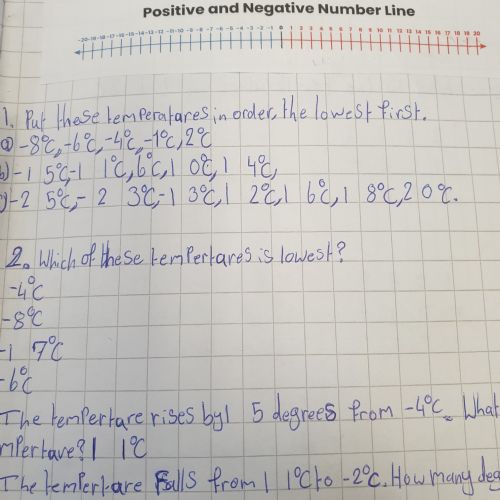 Positive and Negative Number Line
-20 -19 -18 -17 -16 -15 -14 -13 -12 -11 -10 -9 -8 -7 -6 -5 -4 -3 -2 -1 0 1 2 3 4 5 6 7 8 9 10 11 12 13 14 15 16 17 18 19 20
1. Put these temperatares in order, the lowest first.
a) -8°C, -6°C, -4°C, -1°C, 2°C
b) -1 5°C, -1 1°C, 6°C, 1 0°C, 1 4°C,
) -2 5°C, - 2 3°C, -1 3°C, 1 2°C, 1 6°C, 1 8°C, 2 0°C.
2. Which of these tempertares is lowest?
-4°C
-8°C
-1 7°C
-6°C
The tempertare rises by 1 5 degrees from -4°C. What
mpertave? 1 1°C
The tempertare falls from 1 1°C to -2°C. How many deg